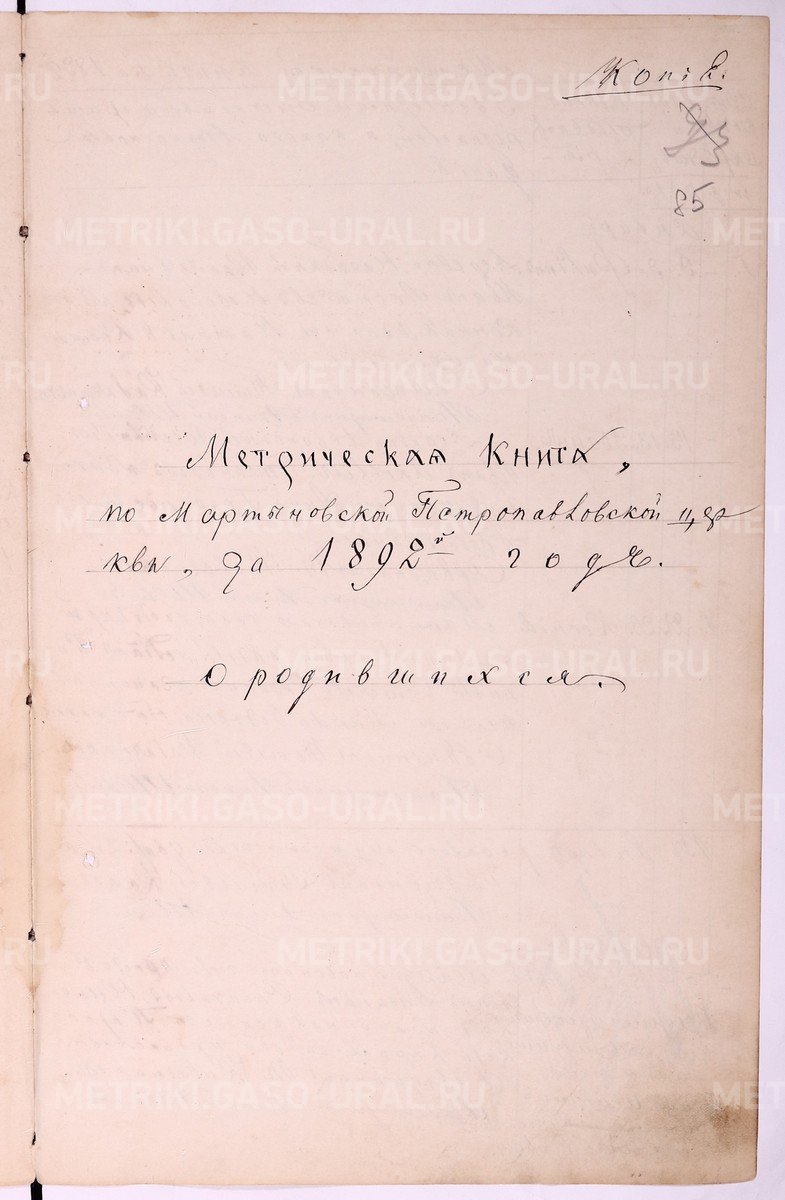 Копiя.
85
Метрическая Книга,
по Мартыновской Петропавловской цер
кви, за 1892й годъ.
о родившихся.
METRIKI.GASO-URAL.RU